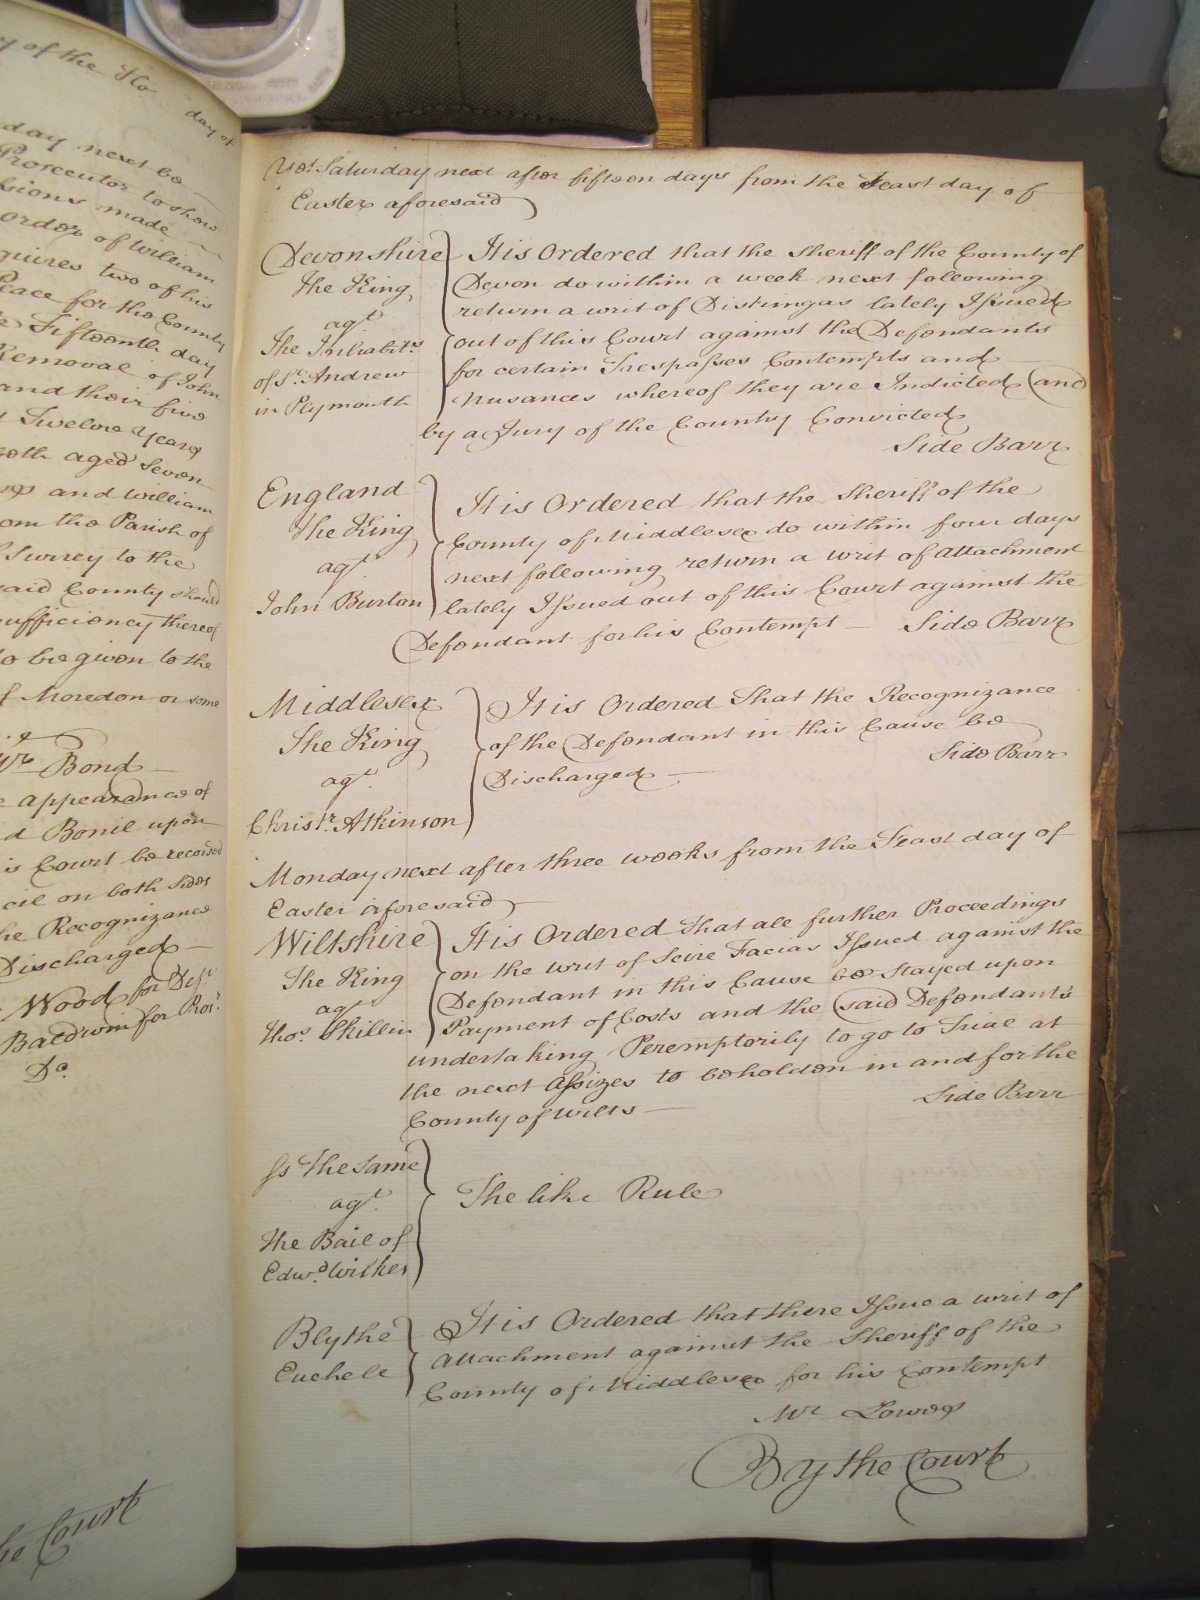 y of the
day of
day next be
Prosecutor to show
sions made
order of William
quires two of his
Peace for the County
Fifteenth day
Removal of John
and their five
Twelve years
both aged Seven
and William
om the Parish of
Surrey to the
said County should
sufficiency thereof
to be given to the
of Moredon or some
Bond
appearance of
d Bonil upon
is Court be recorded
cil on both sides
he Recognizance
Discharged
Wood for Def.t
Baldwin for Pros.r
D.o
he Court
Saturday next after fifteen days from the Feast day of
Easter aforesaid
Devonshire
The King
ag.t
The Inhabit.s
of S.t Andrew
in Plymouth
It is Ordered that the Sheriff of the County of
Devon do within a week next following
return a writ of Distringas lately Issued
out of this Court against the Defendants
for certain Trespasses Contempts and
Nusances whereof they are Indicted and
by a Jury of the Country Convicted
Side Barr
England
The King
ag.t
John Burton
It is Ordered that the Sheriff of the
County of Middlesex do within four days
next following return a writ of attachment
lately Issued out of this Court against the
Defendant for his Contempt — Side Barr
Middlesex
The King
ag.t
Christ.r Atkinson
It is Ordered That the Recognizance
of the Defendant in this Cause be
Discharged —
Side Barr
Monday next after three weeks from the Feast day of
Easter aforesaid —
Wiltshire
The King
ag.t
Tho.s Skillin
It is Ordered That all further Proceedings
on the writ of Scire Facias Issued against the
Defendant in this Cause be Stayed upon
Payment of Costs and the said Defendants
undertaking Peremptorily to go to Trial at
the next Assizes to be holden in and for the
County of Wilts —
Side Barr
Ss The Same
ag.t
The Bail of
Edw.d Wilkes
The like Rule
Blythe
Euchele
It is Ordered that there Issue a writ of
attachment against the Sheriff of the
County of Middlesex for his Contempt
Mr Lowes
By the Court